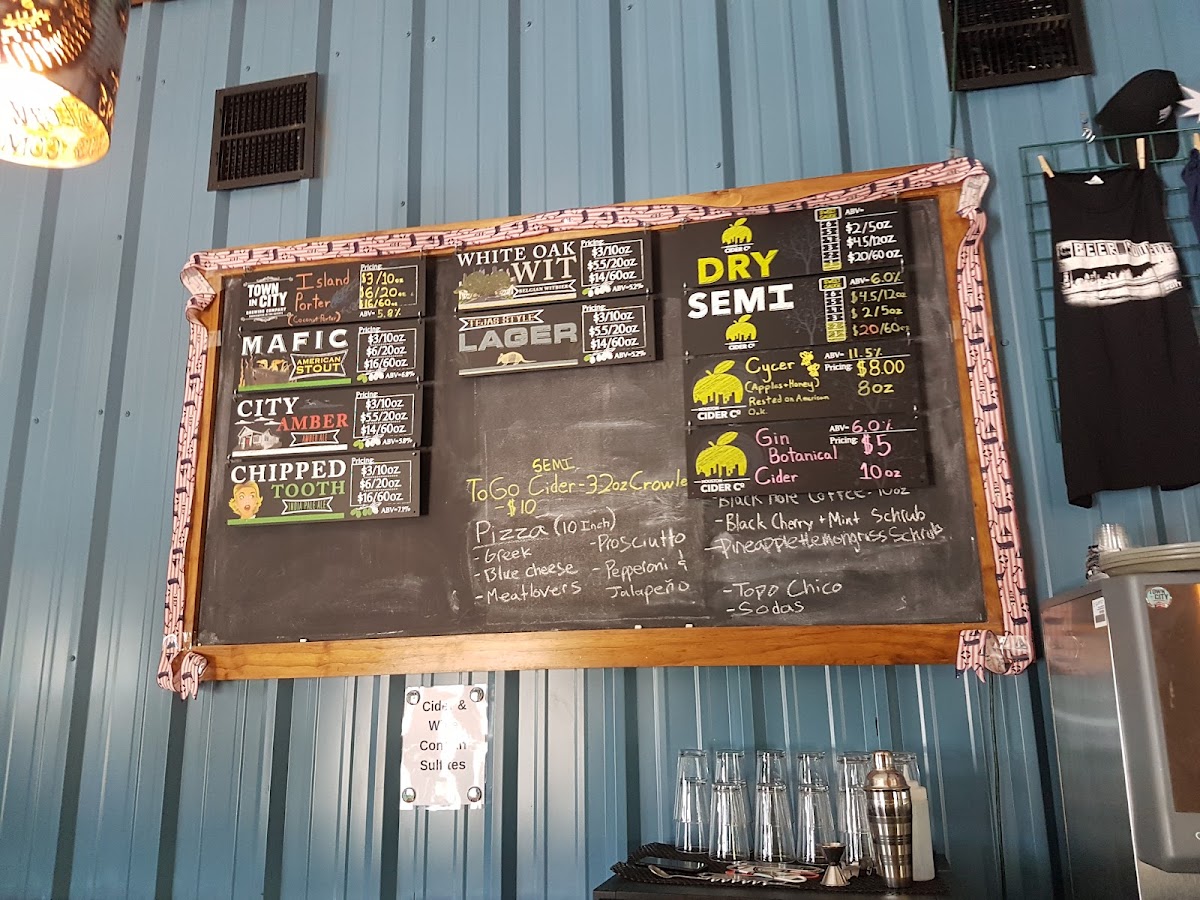 TOWN
IN
CITY
BREWING COMPANY
Island
Porter
(Coconut Porter)
Pricing:
$3/10oz
$6/20oz
$16/60oz
ABV= 5.8%
MAFIC
AMERICAN
STOUT
Pricing:
$3/10oz.
$6/20oz.
$16/60oz.
ABV=6.8%
CITY
AMBER
AMBER ALE
Pricing:
$3/10oz.
$5.5/20oz.
$14/60oz.
ABV=5.8%
CHIPPED
TOOTH
INDIA PALE ALE
Pricing:
$3/10oz.
$6/20oz.
$16/60oz.
ABV=7.1%
WHITE OAK
WIT
BELGIAN WITBIER
Pricing:
$3/10oz.
$5.5/20oz.
$14/60oz.
ABV=5.2%
TEJAS STYLE
LAGER
Pricing:
$3/10oz.
$5.5/20oz.
$14/60oz.
ABV=5.2%
SEMI
ToGo Cider-32oz Crowle
-$10
Pizza (10 Inch)
-Greek
-Blue cheese
-Meatlovers
-Prosciutto
-Pepperoni &
Jalapeño
CIDER Cº
DRY
ABV=
$2/5oz
$4.5/12oz
$20/60oz
SEMI
CIDER Cº
ABV= 6.0%
$4.5/12oz
$2/5oz
$20/60oz
HOUSTON
CIDER Cº
Cycer
(Apples+Honey)
Rested on American
Oak.
ABV= 11.5%
Pricing: $8.00
8oz
HOUSTON
CIDER Cº
Gin
Botanical
Cider
ABV= 6.0%
Pricing: $5
10oz
-Black Note Coffee-10oz
-Black Cherry + Mint Schrub
-Pineapple+Lemongrass Schrub
-Topo Chico
-Sodas
Cider &
Sulfites
BEER
TOWN
CITY